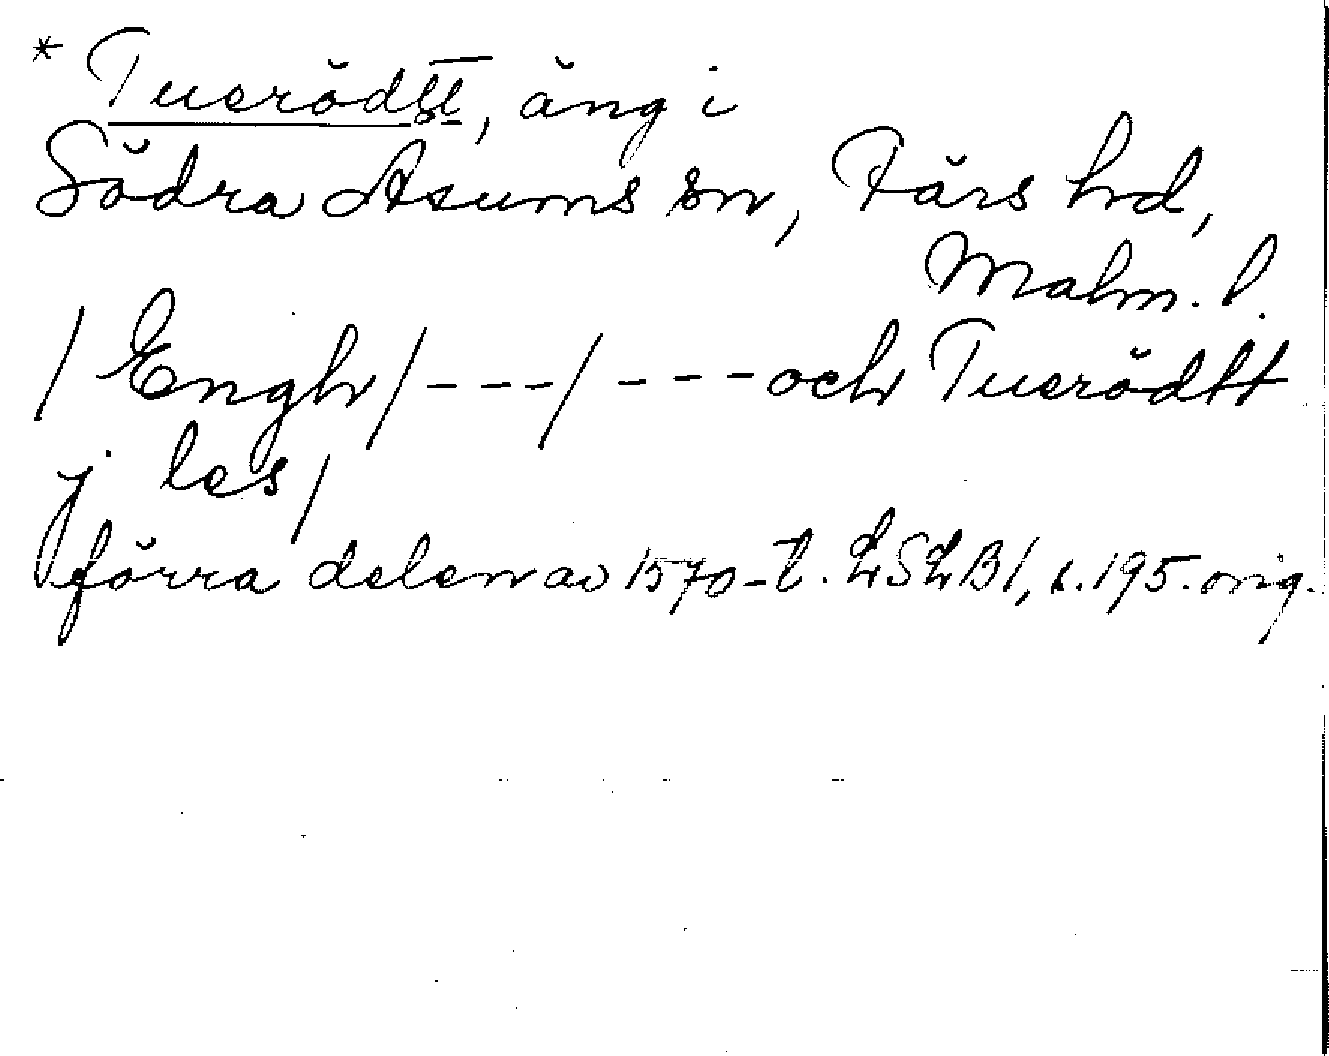 * Tuerödtt, äng i
Södra Asums sn, Färs hd,
Malm. l.
/ Engh / - - - / - - - och Tuerödtt
j les /
förra delen av 1570-t. LSLB 1, s. 195. orig.